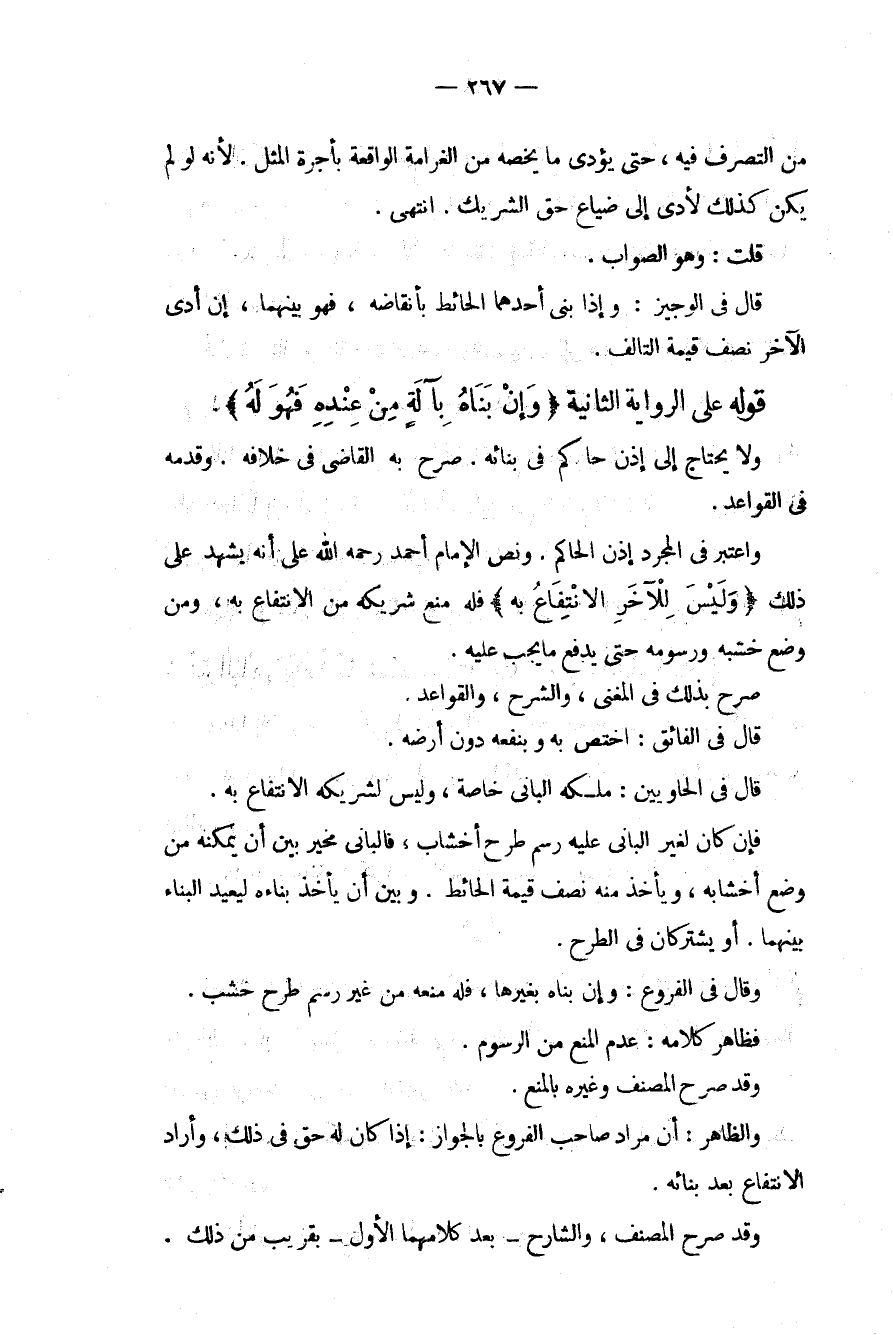 — ٢٦٧ —
من التصرف فيه ، حتى يؤدى ما يخصه من الغرامة الواقعة بأجرة المثل . لأنه لو لم
يكن كذلك لأدى إلى ضياع حق الشريك . انتهى .
قلت : وهو الصواب .
قال فى الوجيز : وإذا بنى أحدهما الحائط بأنقاضه ، فهو بينهما ، إن أدى
الآخر نصف قيمة التالف .
قوله على الرواية الثانية ﴿ وَإِنْ بَنَاهُ بِآلَةٍ مِنْ عِنْدِهِ فَهُوَ لَهُ ﴾ .
ولا يحتاج إلى إذن حاكم فى بنائه . صرح به القاضى فى خلافه . وقدمه
فى القواعد .
واعتبر فى المجرد إذن الحاكم . ونص الإمام أحمد رحمه الله على أنه يشهد على
ذلك ﴿ وَلَيْسَ لِلْآخَرِ الانْتِفَاعُ به ﴾ فله منع شريكه من الانتفاع به ، ومن
وضع خشبه ورسومه حتى يدفع مايجب عليه .
صرح بذلك فى المغنى ، والشرح ، والقواعد .
قال فى الفائق : اختص به وبنفعه دون أرضه .
قال فى الحاويين : ملكه البانى خاصة ، وليس لشريكه الانتفاع به .
فإن كان لغير البانى عليه رسم طرح أخشاب ، فالبانى مخير بين أن يمكنه من
وضع أخشابه ، ويأخذ منه نصف قيمة الحائط . وبين أن يأخذ بناءه ليعيد البناء
بينهما . أو يشتركان فى الطرح .
وقال فى الفروع : وإن بناه بغيرها ، فله منعه من غير رسم طرح خشب .
فظاهر كلامه : عدم المنع من الرسوم .
وقد صرح المصنف وغيره بالمنع .
والظاهر : أن مراد صاحب الفروع بالجواز : إذا كان له حق فى ذلك ، وأراد
الانتفاع بعد بنائه .
وقد صرح المصنف ، والشارح – بعد كلامهما الأول – بقريب من ذلك .